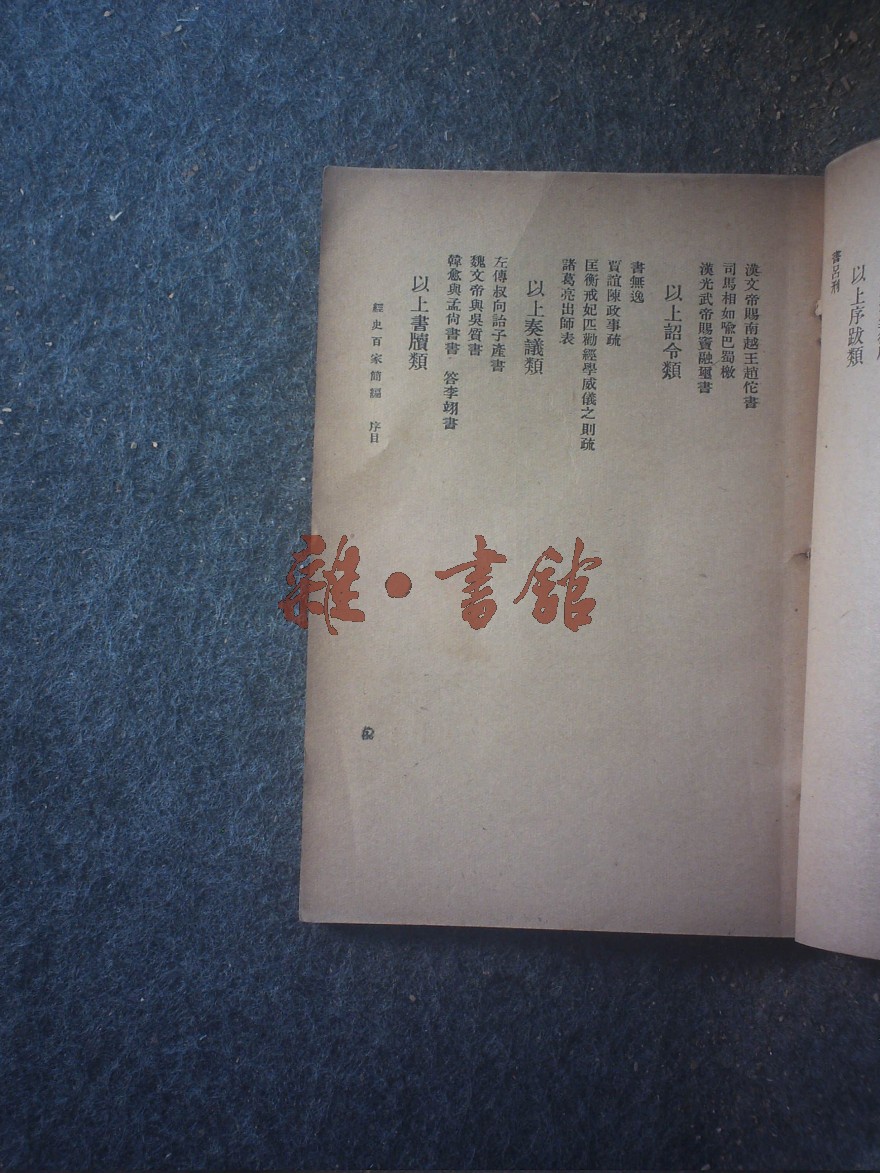 以上序跋類
書呂刑
漢文帝賜南越王趙佗書
司馬相如喻巴蜀檄
漢光武帝賜竇融璽書
以上詔令類
書無逸
賈誼陳政事疏
匡衡戒妃匹勸經學威儀之則疏
諸葛亮出師表
以上奏議類
左傳叔向詒子產書
魏文帝與吳質書
韓愈與孟尙書書 答李翊書
以上書牘類
經史百家簡編 序目
雜·書館